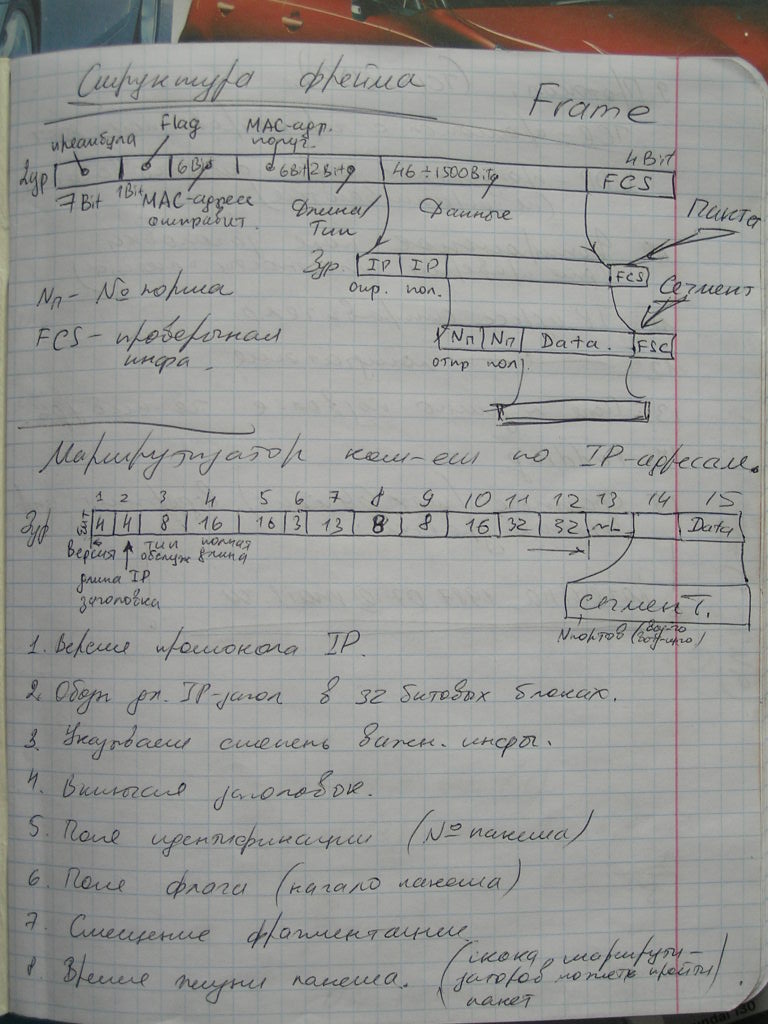 Структура фрейма
Frame
преамбула
Flag
МАС-адр. получ.
4 Bit
2ур
6 Bit
6Bit
2Bit
46÷1500Bit
FCS
7 Bit
1Bit
МАС-адресс
отправит.
Длина/
Тип
Данные
Пакета
3ур.
IP
IP
FCS
отр.
пол.
Сегмент
Nп - № порта
FCS - проверочная
инфа.
Nп
Nп
Data.
FSC
отпр
пол.
Маршрутизатор ком-ет по IP-адресам.
1 2 3 4 5 6 7 8 9 10 11 12 13 14 15
3ур
4 4 8 16 16 3 13 8 8 16 32 32 ~L Data
Версия
тип
обслуж
полная
длина
длина IP
заголовка
сегмент.
Nпортов
1. Версия протокола IP.
2. Обозн дл. IP-загол в 32 битовых блоках.
3. Указывает степень важн. инфы.
4. Включая заголовок.
5. Поле идентификации (№ пакета)
6. Поле флага (начало пакета)
7. Смещение фрагментации
8. Время жизни пакета. (скока маршрути-
заторов может пройти)
пакет